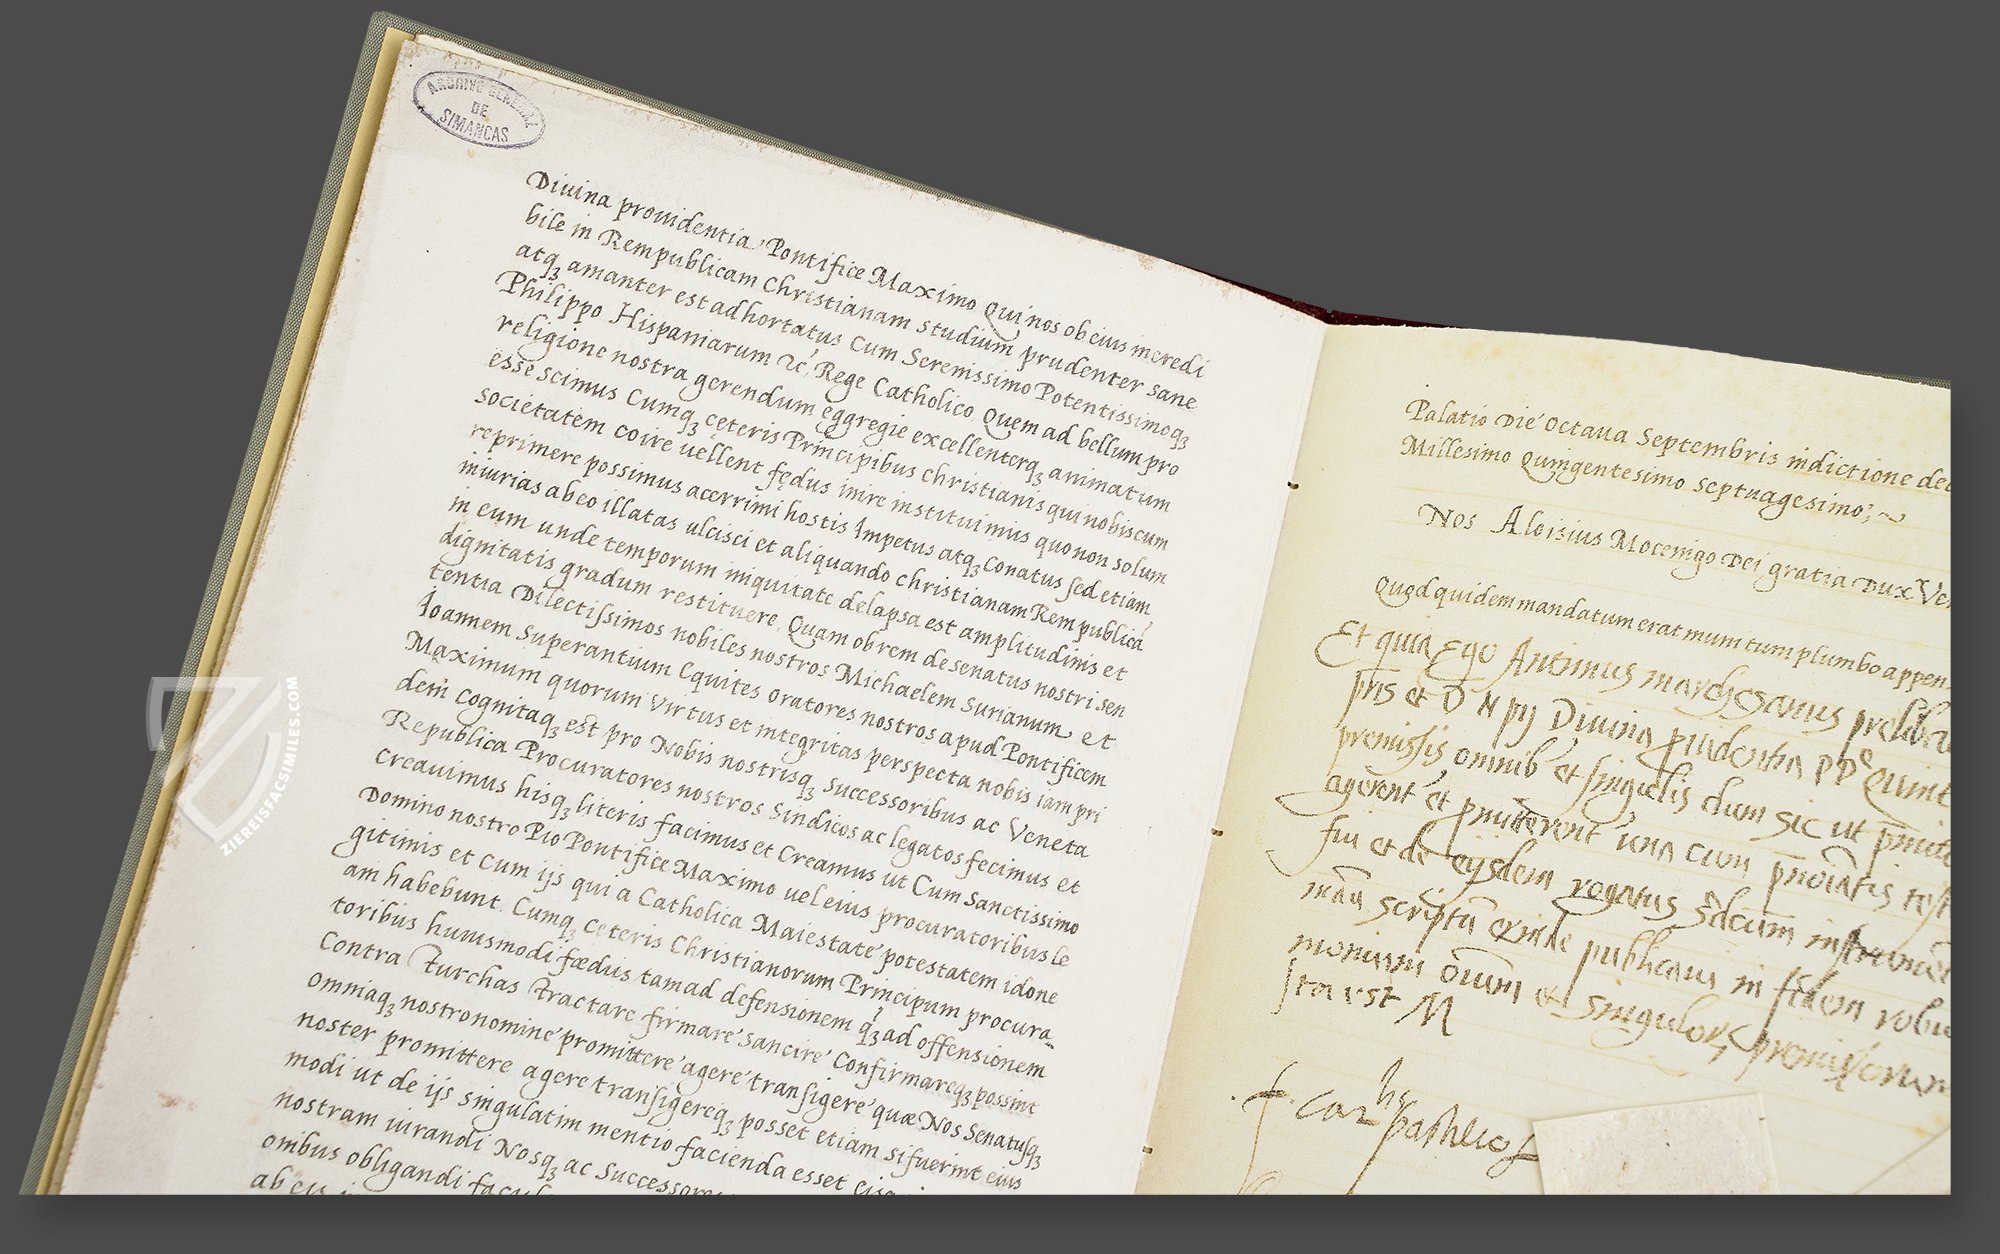 ARCHIVO GENERAL
DE
SIMANCAS
Diuina prouidentia Pontifice Maximo Qui nos ob eius incredi
bile in Rempublicam Christianam studium prudenter sane
atq3 amanter est adhortatus Cum Serenissimo Potentissimoq3
Philippo Hispaniarum &c, Rege Catholico Quem ad bellum pro
religione nostra gerendum eggregie excellenterq3 animatum
esse scimus Cumq3 ceteris Principibus christianis qui nobiscum
societatem coire uellent fędus inire instituimus quo non solum
reprimere possimus acerrimi hostis Impetus atq3 Conatus sed etiam
iniurias ab eo illatas ulcisci et aliquando christianam Rem publicã
in eum unde temporum iniquitate delapsa est amplitudinis et
dignitatis gradum restituere, Quam ob rem de senatus nostri sen
tentia Dilectissimos nobiles nostros Michaelem Surianum et
Ioannem Superantium Equites oratores nostros apud Pontificem
Maximum quorum Virtus et integritas perspecta nobis iam pri
dem Cognitaq3 est pro Nobis nostrisq3 Successoribus ac Veneta
Republica Procuratores nostros Sindicos ac legatos fecimus et
Creauimus hisq3 literis facimus et Creamus ut Cum Sanctissimo
Domino nostro Pio Pontifice Maximo uel eius procuratoribus le
gitimis et Cum ijs qui a Catholica Maiestate potestatem idone
am habebunt, Cumq3 Ceteris Christianorum Principum procura
toribus huiusmodi fædus tam ad defensionem q3 ad offensionem
Contra Turchas Tractare firmare sancire Confirmareq3 possint
omniaq3 nostro nomine promittere agere transigere quæ Nos Senatusq3
noster promittere agere transigereq3 posset etiam si fuerint eius
modi ut de ijs singulatim mentio facienda esset
nostram iurandi Nosq3 ac Successores
onibus obligandi
Palatio Die Octaua Septembris indictione dec
Millesimo Quingentesimo septuagesimo;~
Nos Aloisius Mocenigo Dei gratia Dux Ven
Quod quidem mandatum erat munitum plumbo appen
Et quia Ego Antimus marchesanus
pris et D N pij Diuina prudentia pp quint
premissis omnib et singulis dum sic ut
agerent et una cum
fui et de eisdem rogatus
manu scriptũ exinde publicaui in fidem
monium oium et singulor premissorum